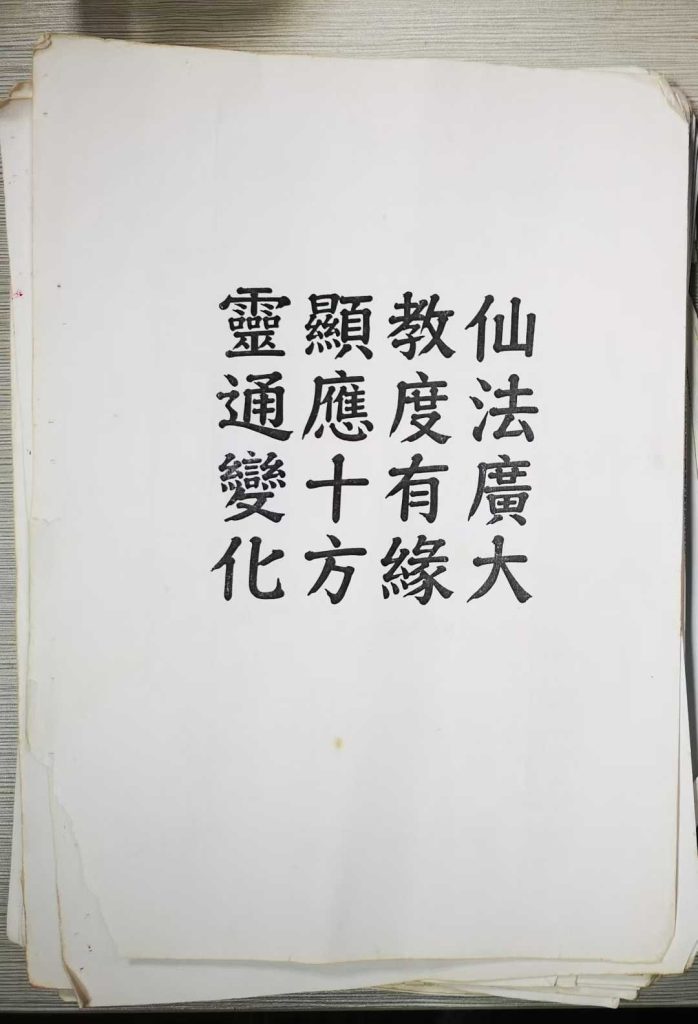 仙法廣大
教度有緣
顯應十方
靈通變化